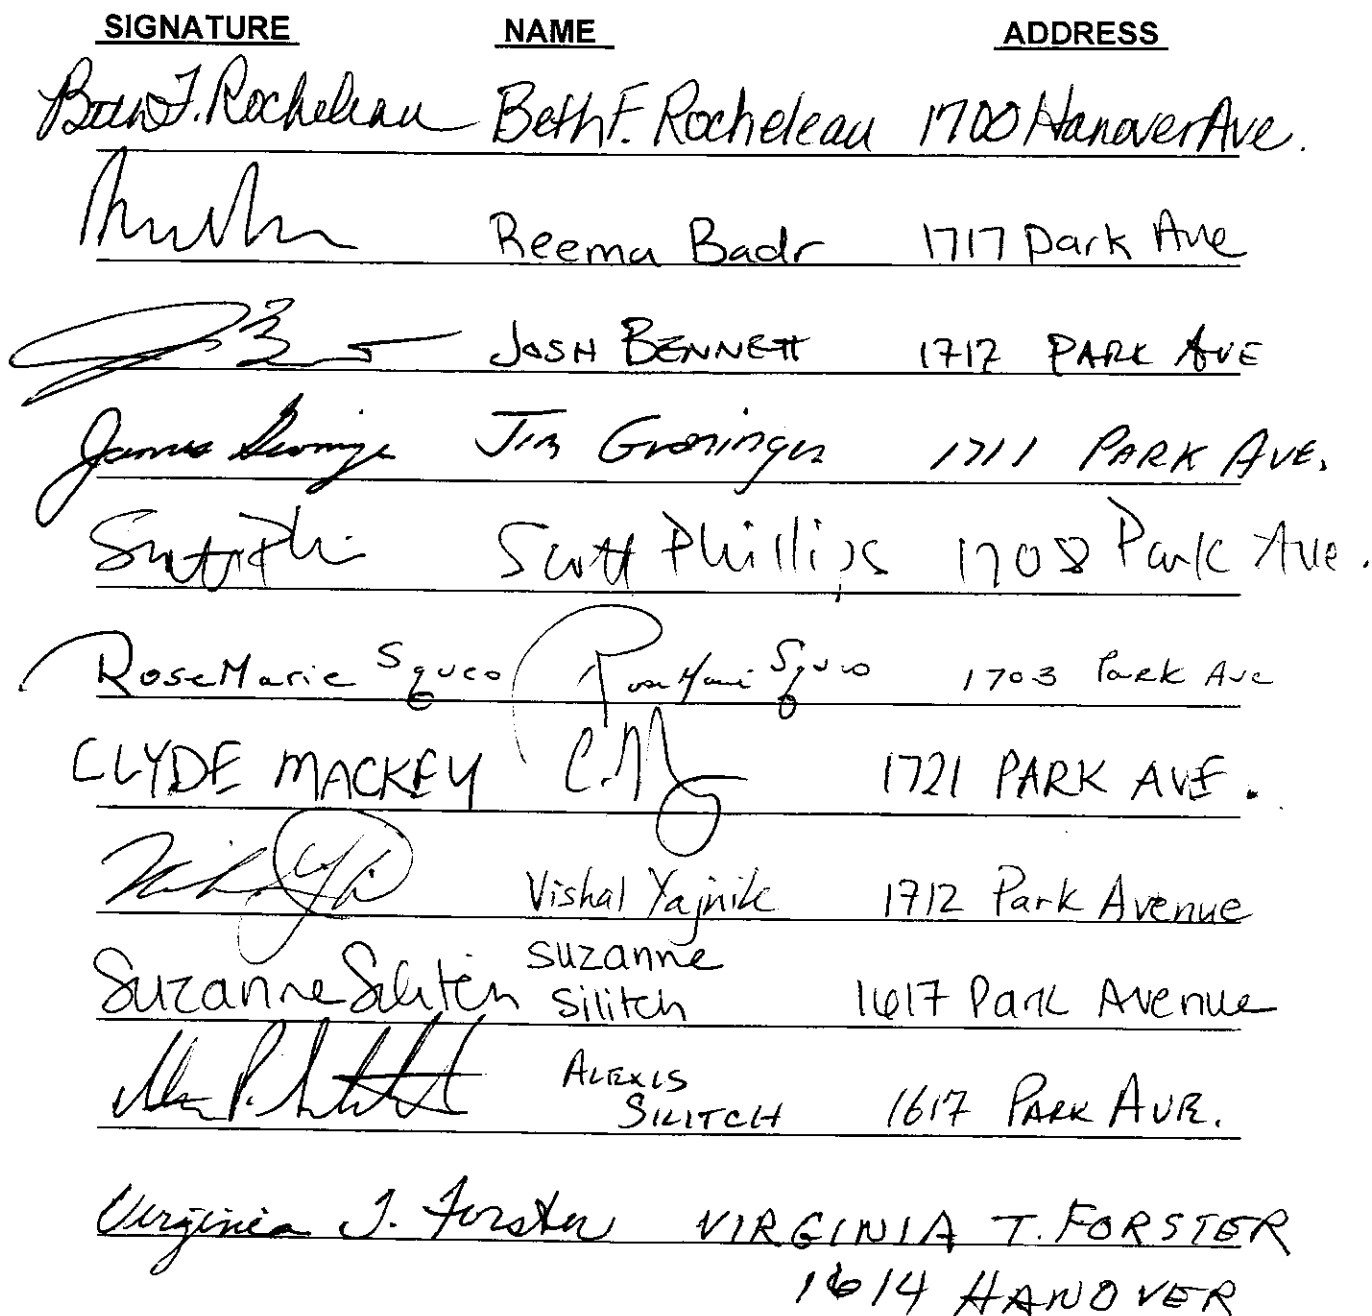 SIGNATURE NAME ADDRESS
Beth F. Rocheleau Beth F. Rocheleau 1700 Hanover Ave.
Reema Badr 1717 Park Ave
JOSH BENNETT 1712 PARK AVE
James Groninger Jim Groninger 1711 PARK AVE.
Scott Phillips 1708 Park Ave.
RoseMarie Squeo RoseMarie Squeo 1703 Park Ave
CLYDE MACKEY C.M 1721 PARK AVE.
Vishal Yajnik 1712 Park Avenue
Suzanne Silitch Suzanne
Silitch 1617 Park Avenue
ALEXIS
SILITCH 1617 PARK AVE.
Virginia T. Forster VIRGINIA T. FORSTER
1614 HANOVER